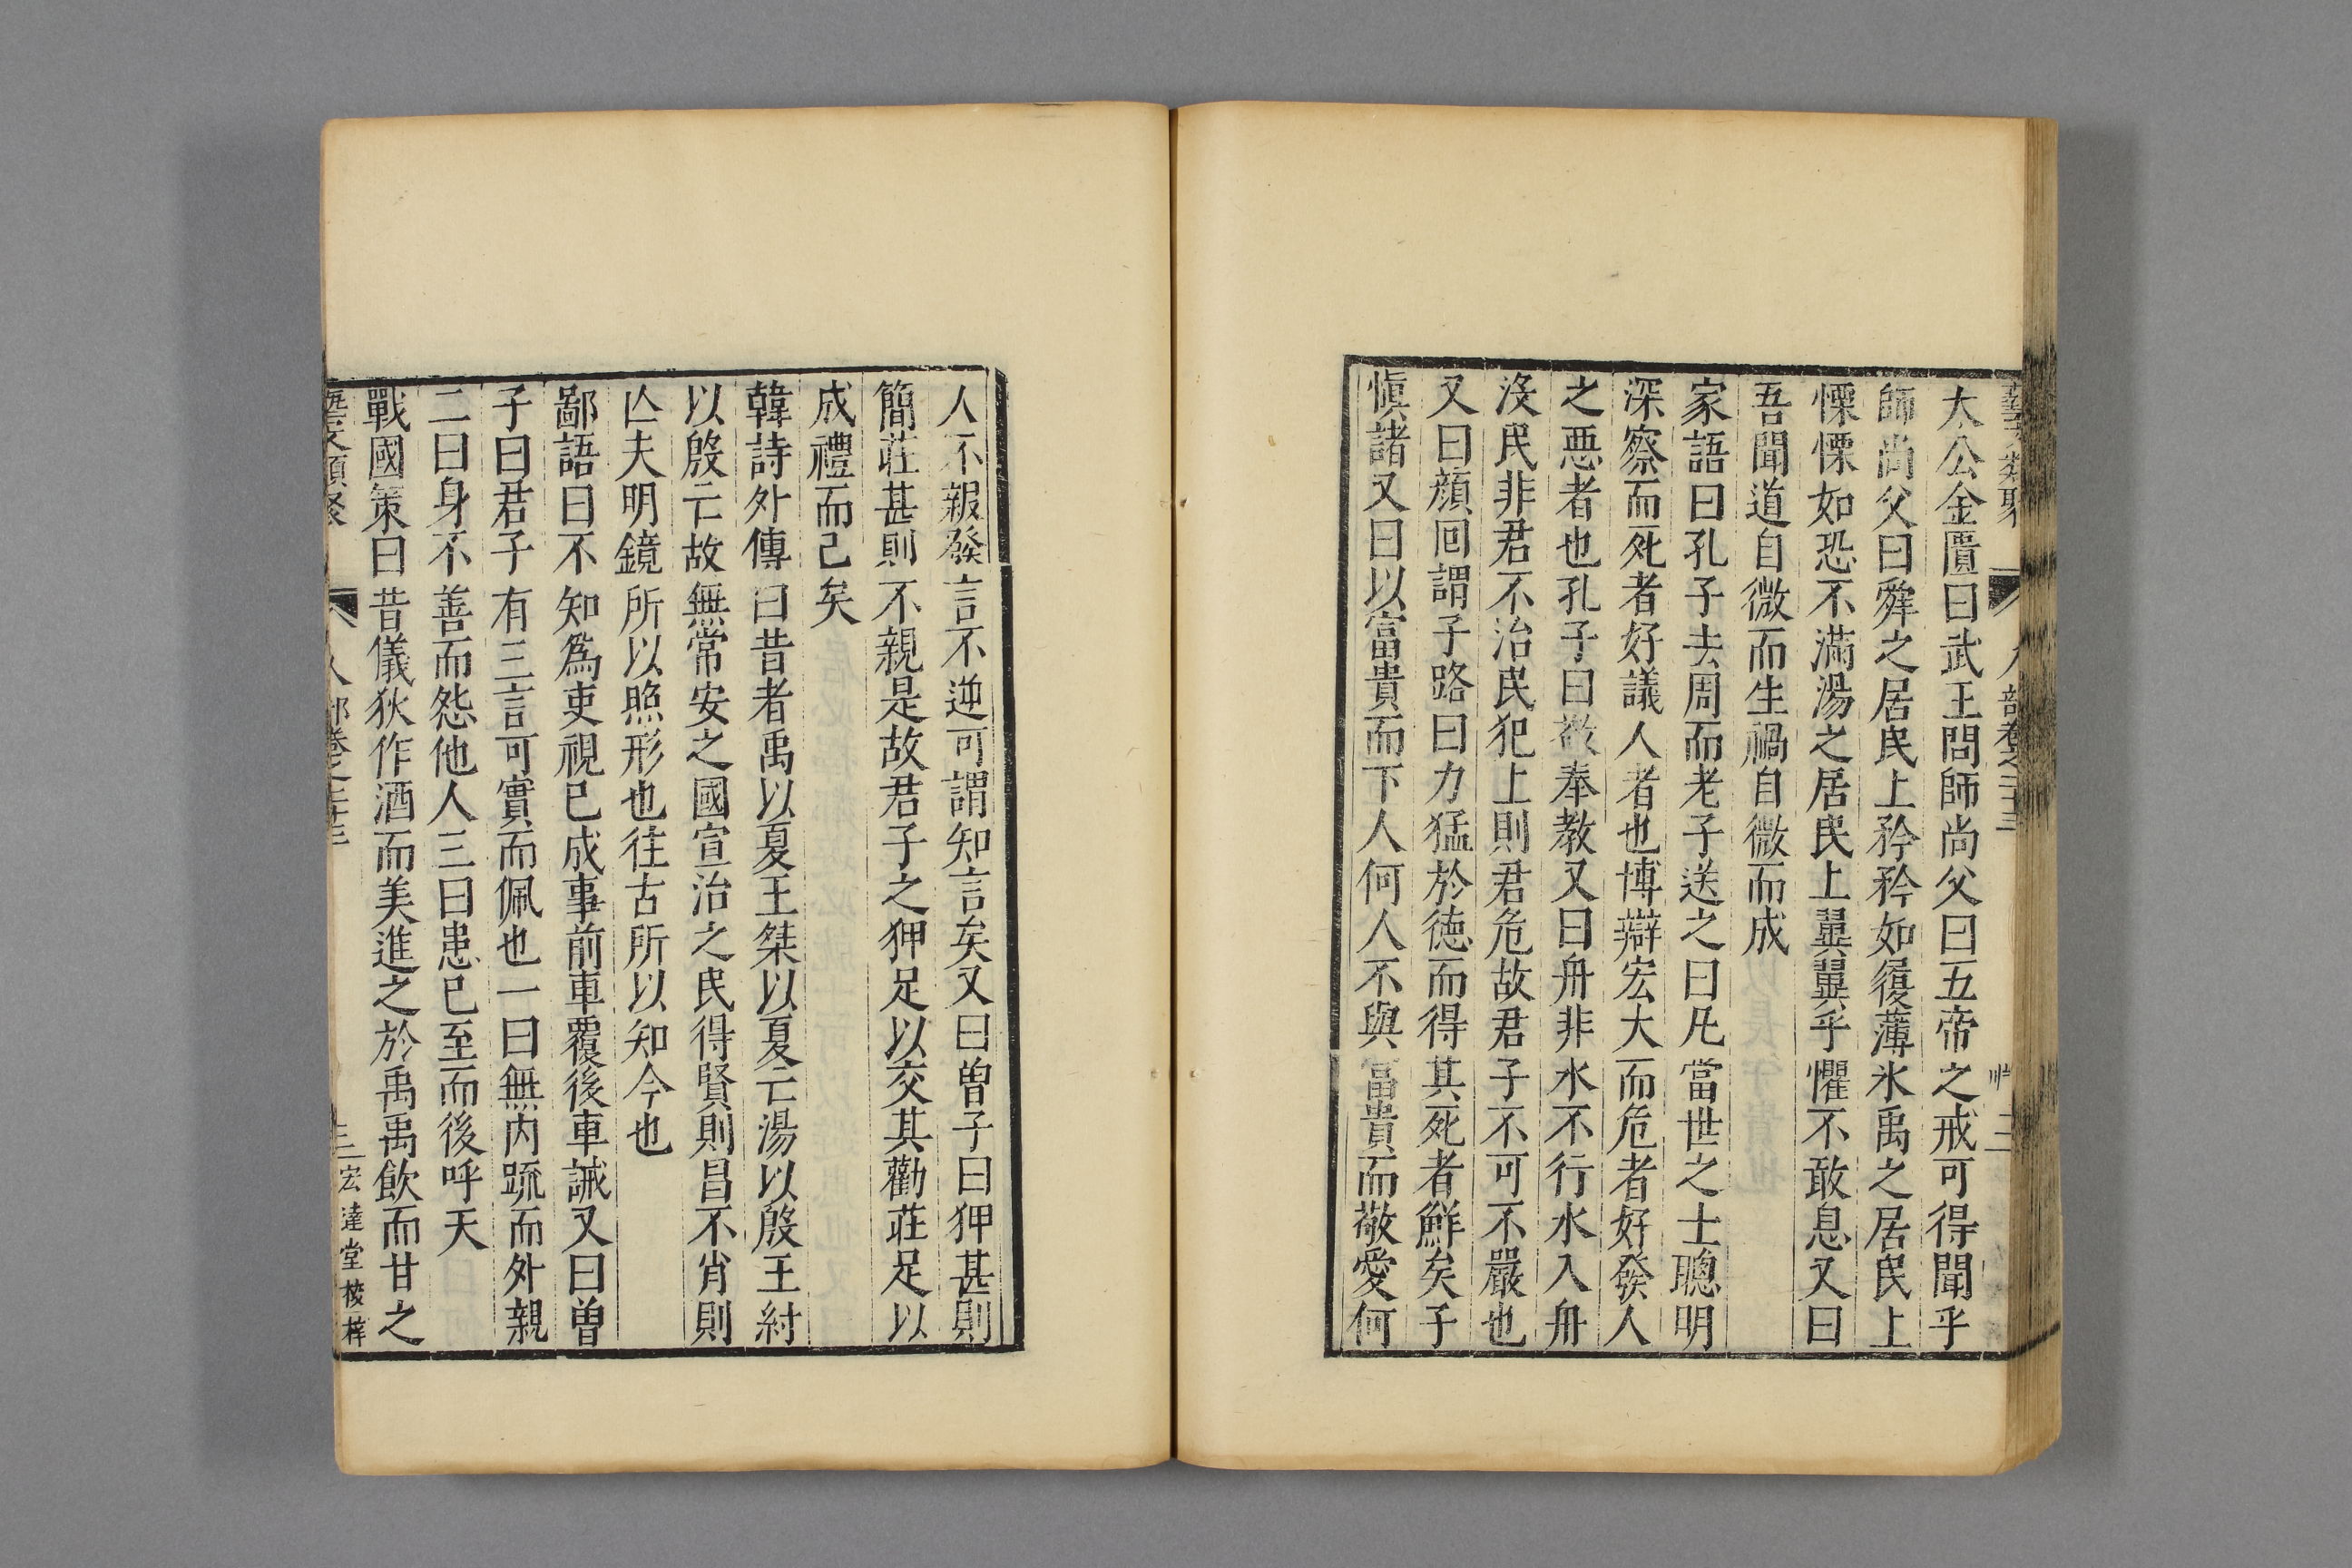 太公金匱曰武王問師尚父曰五帝之戒可得聞乎
師尚父曰舜之居民上矜矜如履薄氷禹之居民上
慄慄如恐不滿湯之居民上翼翼乎懼不敢息又曰
吾聞道自微而生禍自微而成
家語曰孔子去周而老子送之曰凡當世之士聰明
深察而死者好議人者也博辯宏大而危者好發人
之惡者也孔子曰敬奉教又曰舟非水不行水入舟
没民非君不治民犯上則君危故君子不可不嚴也
又曰顔囘謂子路曰力猛於徳而得其死者鮮矣子
愼諸又曰以富貴而下人何人不與富貴而敬愛何
人不親發言不逆可謂知言矣又曰曾子曰狎甚則
簡莊甚則不親是故君子之狎足以交其勸莊足以
成禮而已矣
韓詩外傳曰昔者禹以夏王桀以夏亡湯以殷王紂
以殷亡故無常安之國宣治之民得賢則昌不肖則
亾夫明鏡所以照形也往古所以知今也
鄙語曰不知爲吏視已成事前車覆後車誡又曰曾
子曰君子有三言可實而佩也一曰無内疏而外親
二曰身不善而怨他人三曰患已至而後呼天
戰國策曰昔儀狄作酒而美進之於禹禹飲而甘之
藝文類聚 人部卷之二十三 三 宏達堂校梓